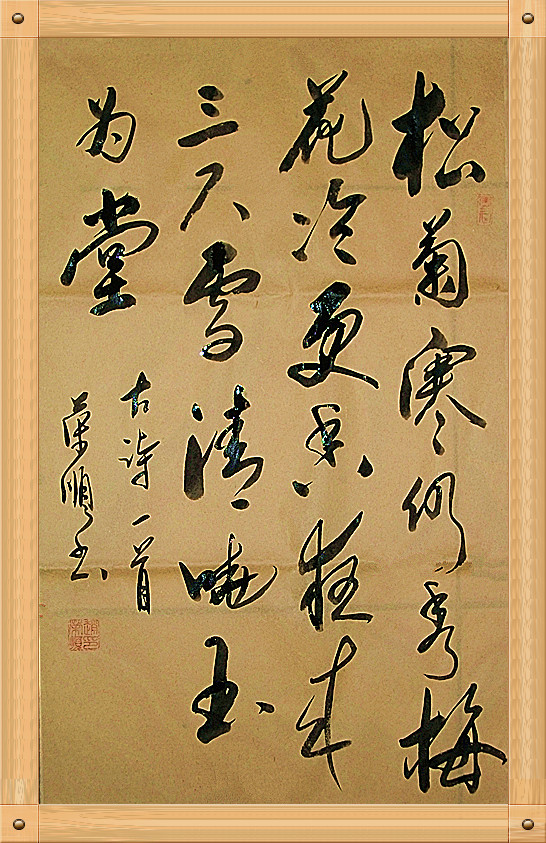 松菊寒仍秀梅
花冷更香来
三尺雪清晓玉
为堂
古诗一首
荣顺书